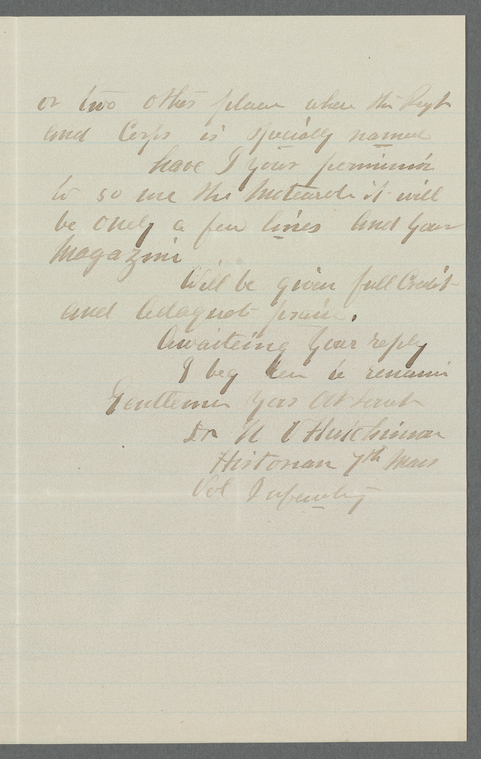 or two other places where the Regt
and Corps is specially named
have I your permission
to so use this it will
be only a few lines and your
Magazine
Will be given full Credit
and Adaquet praise.
Awaiting your reply
I beg to remain
Gentlemen Yors Obt servt
Dr N V Hutchinson
Historian 7th Mass
Vol Infantry